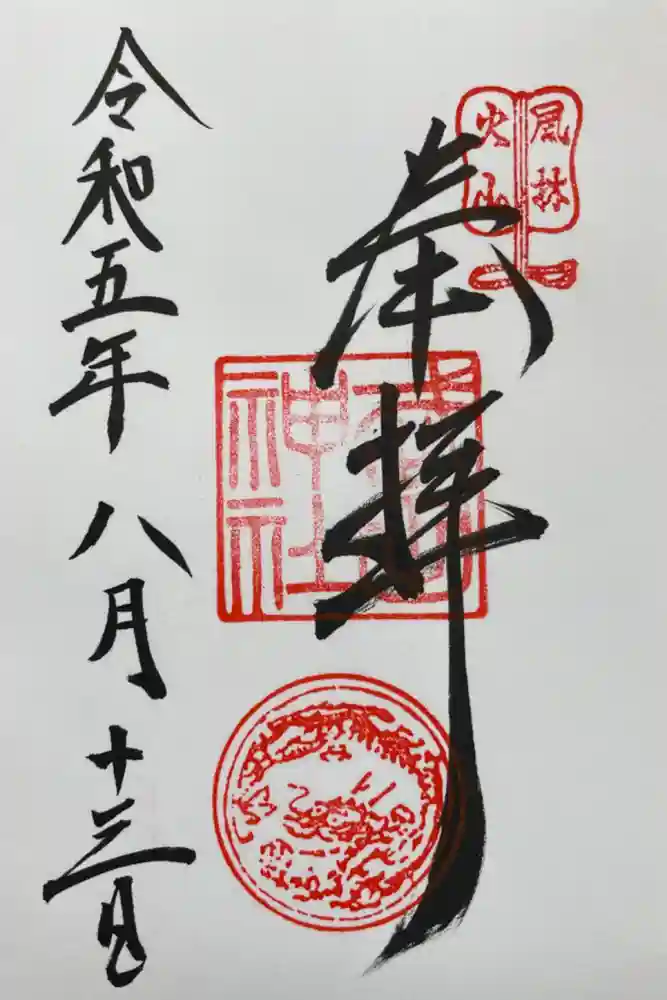 風林
火山
奉拝
神社
令和五年八月十三日